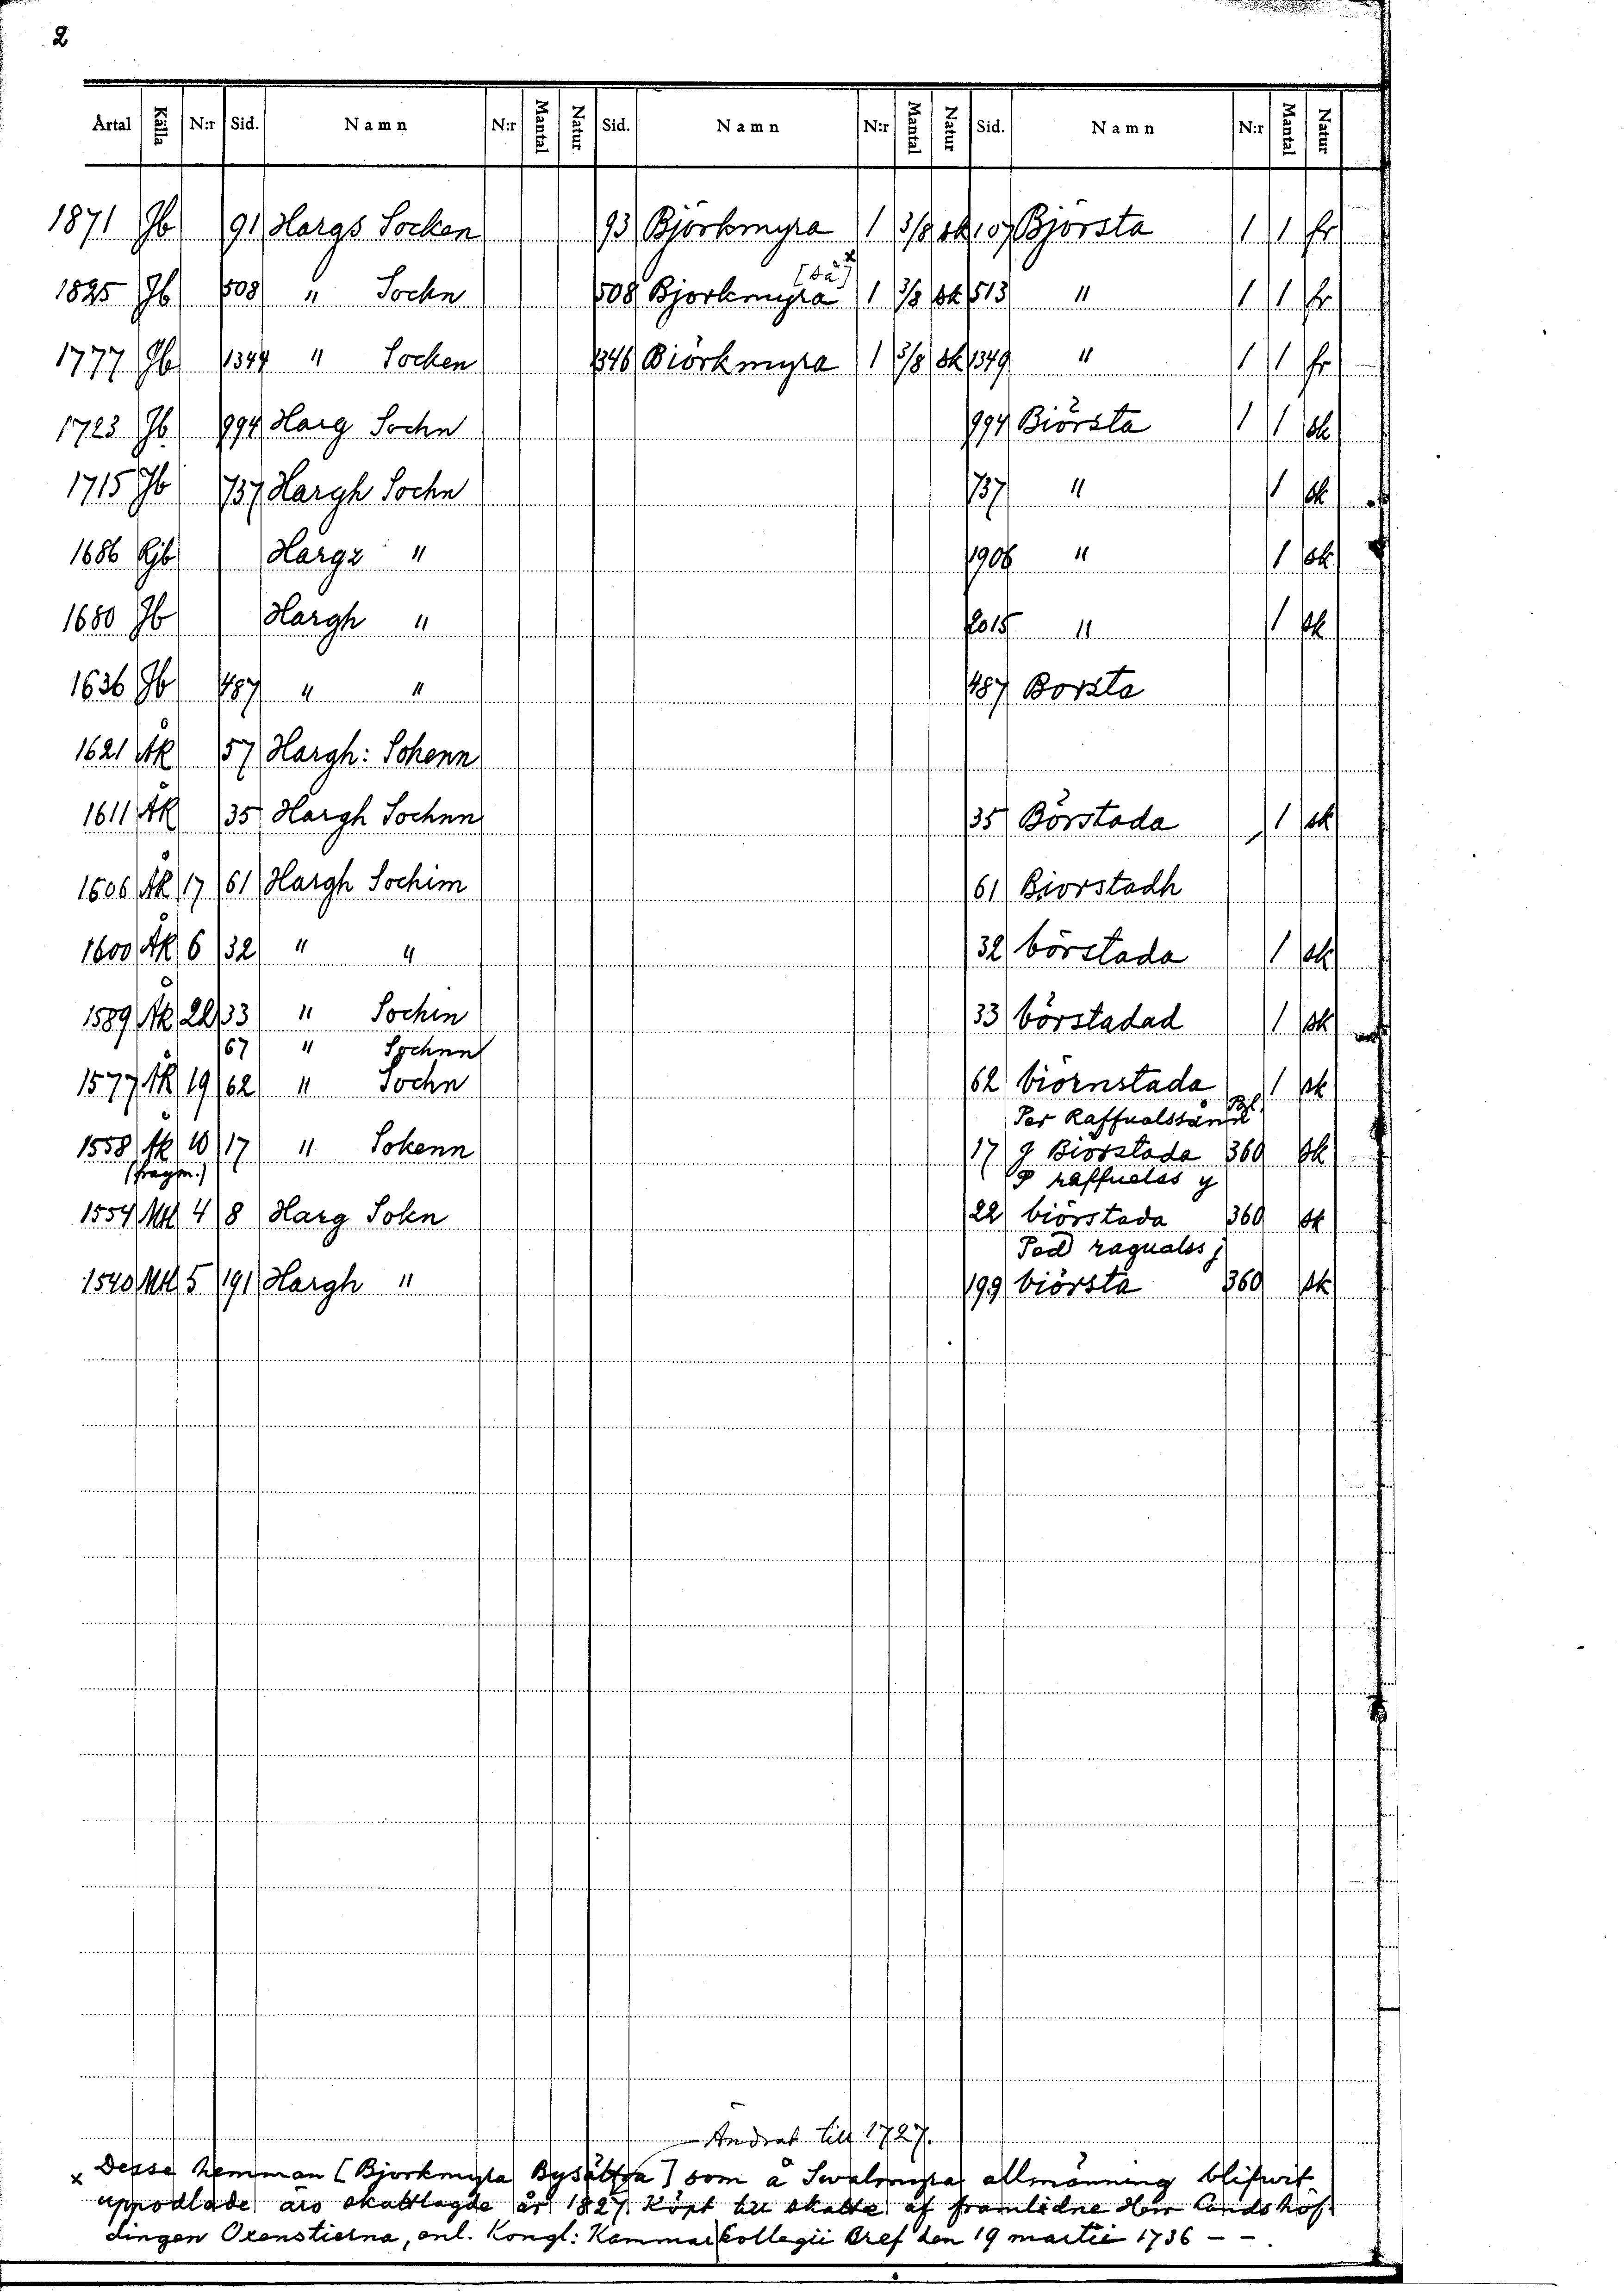 2
Årtal Källa N:r Sid. Namn N:r Mantal Natur Sid. Namn N:r Mantal Natur Sid. Namn N:r Mantal Natur
1871 Jb 91 Hargs Socken 93 Björkmyra 1 3/8 sk 107 Björsta 1 1 fr
[så] x
1825 Jb 508 " Sockn 508 Bjorkmyra 1 3/8 sk 513 " 1 1 fr
1777 Jb 1344 " Socken 1346 Biörkmyra 1 3/8 sk 1349 " 1 1 fr
1723 Jb 994 Harg Sochn 994 Biörsta 1 1 sk
1715 Jb 737 Hargh Sochn 737 " 1 sk
1686 Rjb Hargz " 1906 " 1 sk
1680 Jb Hargh " 2015 " 1 sk
1636 Jb 487 " " 487 Borsta
1621 Åk 57 Hargh: Sohenn
1611 Åk 35 Hargh Sochnn 35 Börstada 1 sk
1606 Åk 17 61 Hargh Sochim 61 Biorstadh
1600 Åk 6 32 " " 32 börstada 1 sk
1589 Åk 22 33 " Sochin 33 börstadad 1 sk
67 " Sochnn
1577 Åk 19 62 " Sochn 62 biornstada 1 sk
Per Bl.
1558 Åk 10 17 " Sokenn 17 g Biörstada 360 sk
(fragm.) P raffuelss y
1554 MH 4 8 Harg Sokn 22 biörstada 360 sk
Ped ragualss j
1540 MH 5 191 Hargh " 199 biörsta 360 sk
Ändrat till 1727.
x Desse hemman [Bjorkmyra Bysättra] som å Swalmyra allmänning blifwit
uppodlade äro skattlagde år 1827. Köpt till skatte af framledne Herr Landshöf-
dingen Oxenstierna, enl. Kongl: Kammarkollegii Bref den 19 martii 1736 – –.